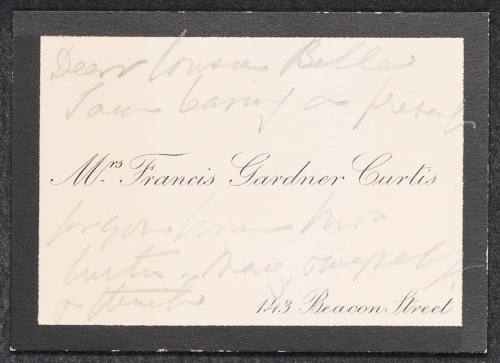 Dear Cousin Bella
I am leaving a present
Mrs. Francis Gardner Curtis
for you from Mrs
Curtis, May, & myself,
143 Beacon Street